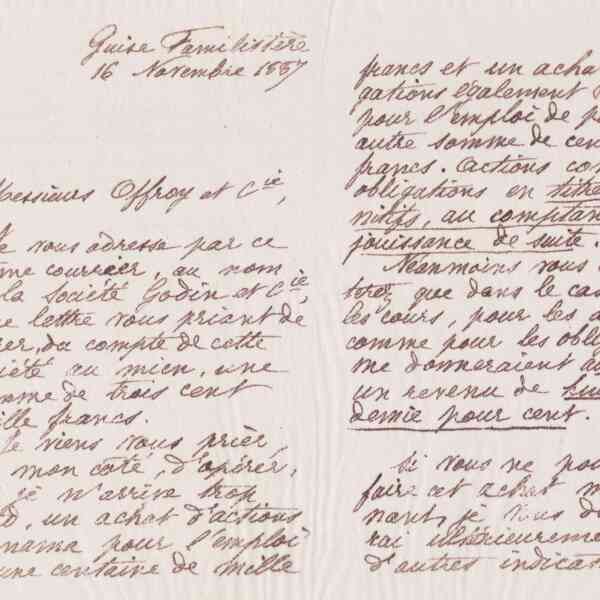 Guise Familistère
16 Novembre 1887
Messieurs Offroy et Cie,
Je vous adresse par ce
même courrier, au nom
la Société Godin et Cie,
ne lettre vous priant de
rer, du compte de cette
iété au mien, une
mme de trois cent
ille francs.
Je viens vous prier,
mon coté, d'opérer,
je n'arrive trop
d, un achat d'actions
nama pour l'emploi
une centaine de mille
francs et un acha
gations également
pour l'emploi de
autre somme de cen
francs. Actions com
obligations en titre
nitifs, au comptan
jouissance de suite.
Néanmoins vous
terez que dans le cas
les cours, pour les a
comme pour les obli
me donneraient au
un revenu de
demie pour cent.
Si vous ne pou
faire cet achat m
nant, je vous d
rai ultérieureme
d'autres indicat